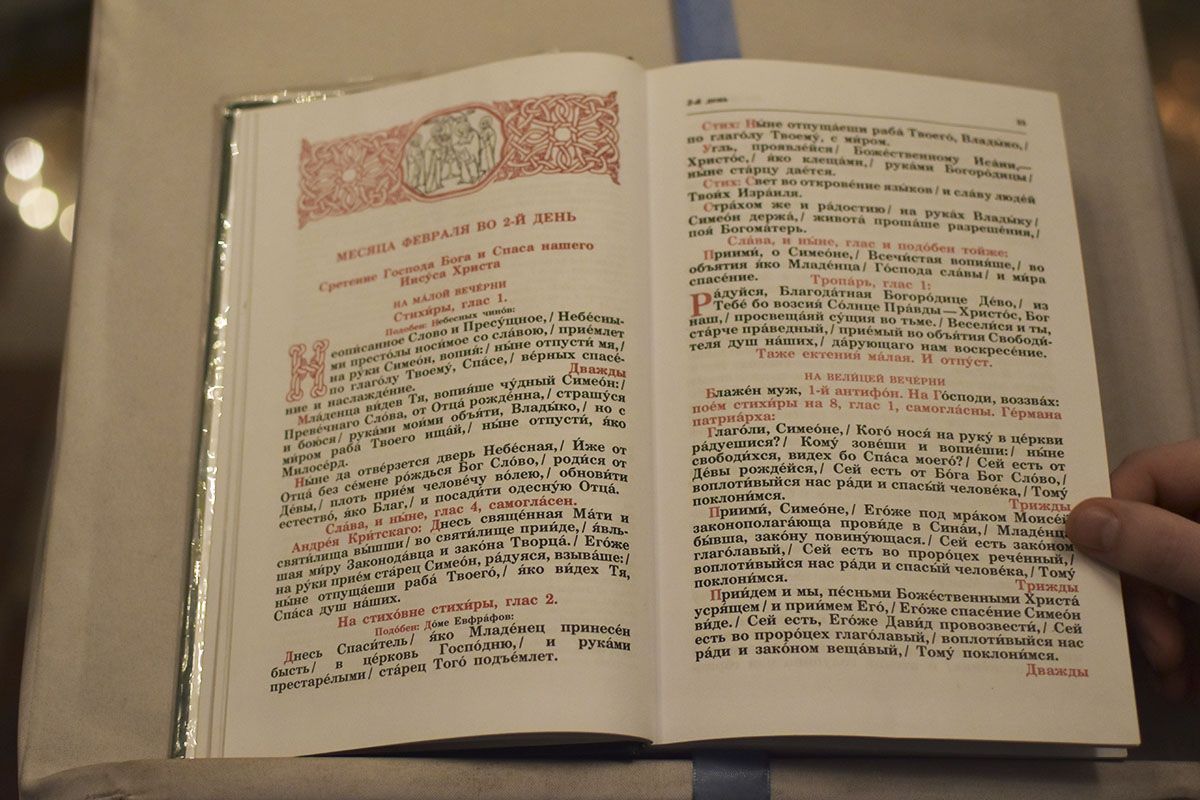 МЕСЯЦА ФЕВРАЛЯ ВО 2-Й ДЕНЬ
Сретение Господа Бога и Спаса нашего
Иису́са Христа
НА МА́ЛОЙ ВЕЧЕ́РНИ
Стихи́ры, глас 1.
Подо́бен: Небе́сных чино́в:
Неопи́санное Сло́во и Пресу́щное,/ Небе́сны-
ми престо́лы носи́мое со сла́вою,/ прие́млет
на ру́ки Симео́н, вопия́:/ ны́не отпусти́ мя,/
по глаго́лу Твоему́, Спа́се,/ ве́рных спасе́-
ние и наслажде́ние.
Дважды
Младе́нца ви́дев Тя, вопия́ше чу́дный Симео́н:/
Преве́чнаго Сло́ва, от Отца́ рожде́нна,/ страшу́ся
и бою́ся/ рука́ми мои́ми объя́ти, Влады́ко,/ но с
ми́ром раба́ Твоего́ ища́й,/ ны́не отпусти́, я́ко
Милосе́рд.
Ны́не да отве́рзется дверь Небе́сная,/ И́же от
Отца́ без се́мене ро́ждься Бог Сло́во,/ роди́ся от
Де́вы,/ плоть прие́м челове́чу во́лею,/ обнови́ти
естество́, я́ко Благ,/ и посади́ти одесну́ю Отца́.
Сла́ва, и ны́не, глас 4, самогла́сен.
Андре́я Кри́тскаго: Днесь свяще́нная Ма́ти и
святи́лища вы́шши/ во святи́лище прии́де,/ явль-
шая ми́ру Законода́вца и зако́на Творца́./ Его́же
на ру́ки прие́м ста́рец Симео́н, ра́дуяся, взыва́ше:/
ны́не отпуща́еши раба́ Твоего́,/ я́ко ви́дех Тя,
Спа́са душ на́ших.
На стихо́вне стихи́ры, глас 2.
Подо́бен: До́ме Евфра́фов:
Днесь Спаси́тель/ я́ко Младе́нец принесе́н
бысть/ в це́рковь Госпо́дню,/ и рука́ми
престаре́лыми/ ста́рец Того́ подъе́млет.
2-й день
Стих: Ны́не отпуща́еши раба́ Твоего́, Влады́ко,/
по глаго́лу Твоему́, с ми́ром.
У́гль, проявле́йся/ Боже́ственному Иса́ии,—
Христо́с,/ я́ко клеща́ми,/ рука́ми Богоро́дицы/
ны́не ста́рцу дае́тся.
Стих: Свет во открове́ние язы́ков/ и сла́ву люде́й
Твои́х Изра́иля.
Стра́хом же и ра́достию/ на рука́х Влады́ку/
Симео́н держа́,/ живота́ проша́ше разреше́ния,/
поя́ Богома́терь.
Сла́ва, и ны́не, глас и подо́бен то́йже:
Приими́, о Симео́не,/ Всечи́стая вопия́ше,/ во
объя́тия я́ко Младе́нца/ Го́спода сла́вы/ и ми́ра
спасе́ние.
Тропа́рь, глас 1:
Ра́дуйся, Благода́тная Богоро́дице Де́во,/ из
Тебе́ бо возсия́ Со́лнце Пра́вды — Христо́с, Бог
наш,/ просвеща́яй су́щия во тьме./ Весели́ся и ты,
ста́рче пра́ведный,/ прие́мый во объя́тия Свободи́-
теля душ на́ших,/ да́рующаго нам воскресе́ние.
Та́же ектения́ ма́лая. И отпу́ст.
НА ВЕЛИ́ЦЕЙ ВЕЧЕ́РНИ
Блаже́н муж, 1-й антифо́н. На Го́споди, воззва́х:
пое́м стихи́ры на 8, глас 1, самогла́сны. Ге́рмана
патриа́рха:
Глаго́ли, Симео́не,/ Кого́ нося́ на руку́ в це́ркви
ра́дуешися?/ Кому́ зове́ши и вопие́ши:/ ны́не
свободи́хся, ви́дех бо Спа́са моего́?/ Сей есть от
Де́вы рожде́йся,/ Сей есть от Бо́га Бог Сло́во,/
воплоти́выйся нас ра́ди и спасы́й челове́ка,/ Тому́
поклони́мся.
Три́жды
Приими́, Симео́не,/ Его́же под мра́ком Моисе́й
законополага́юща прови́де в Сина́и,/ Младе́нца
бы́вша, зако́ну повину́ющася./ Сей есть зако́ном
глаго́лавый,/ Сей есть во проро́цех рече́нный,/
воплоти́выйся нас ра́ди и спасы́й челове́ка,/ Тому́
поклони́мся.
Три́жды
Прии́дем и мы, пе́сньми Боже́ственными Христа́
усря́щем/ и прии́мем Его́,/ Его́же спасе́ние Симео́н
ви́де./ Сей есть, Его́же Дави́д провозвести́,/ Сей
есть во проро́цех глаго́лавый,/ воплоти́выйся нас
ра́ди и зако́ном веща́вый,/ Тому́ поклони́мся.
Два́жды